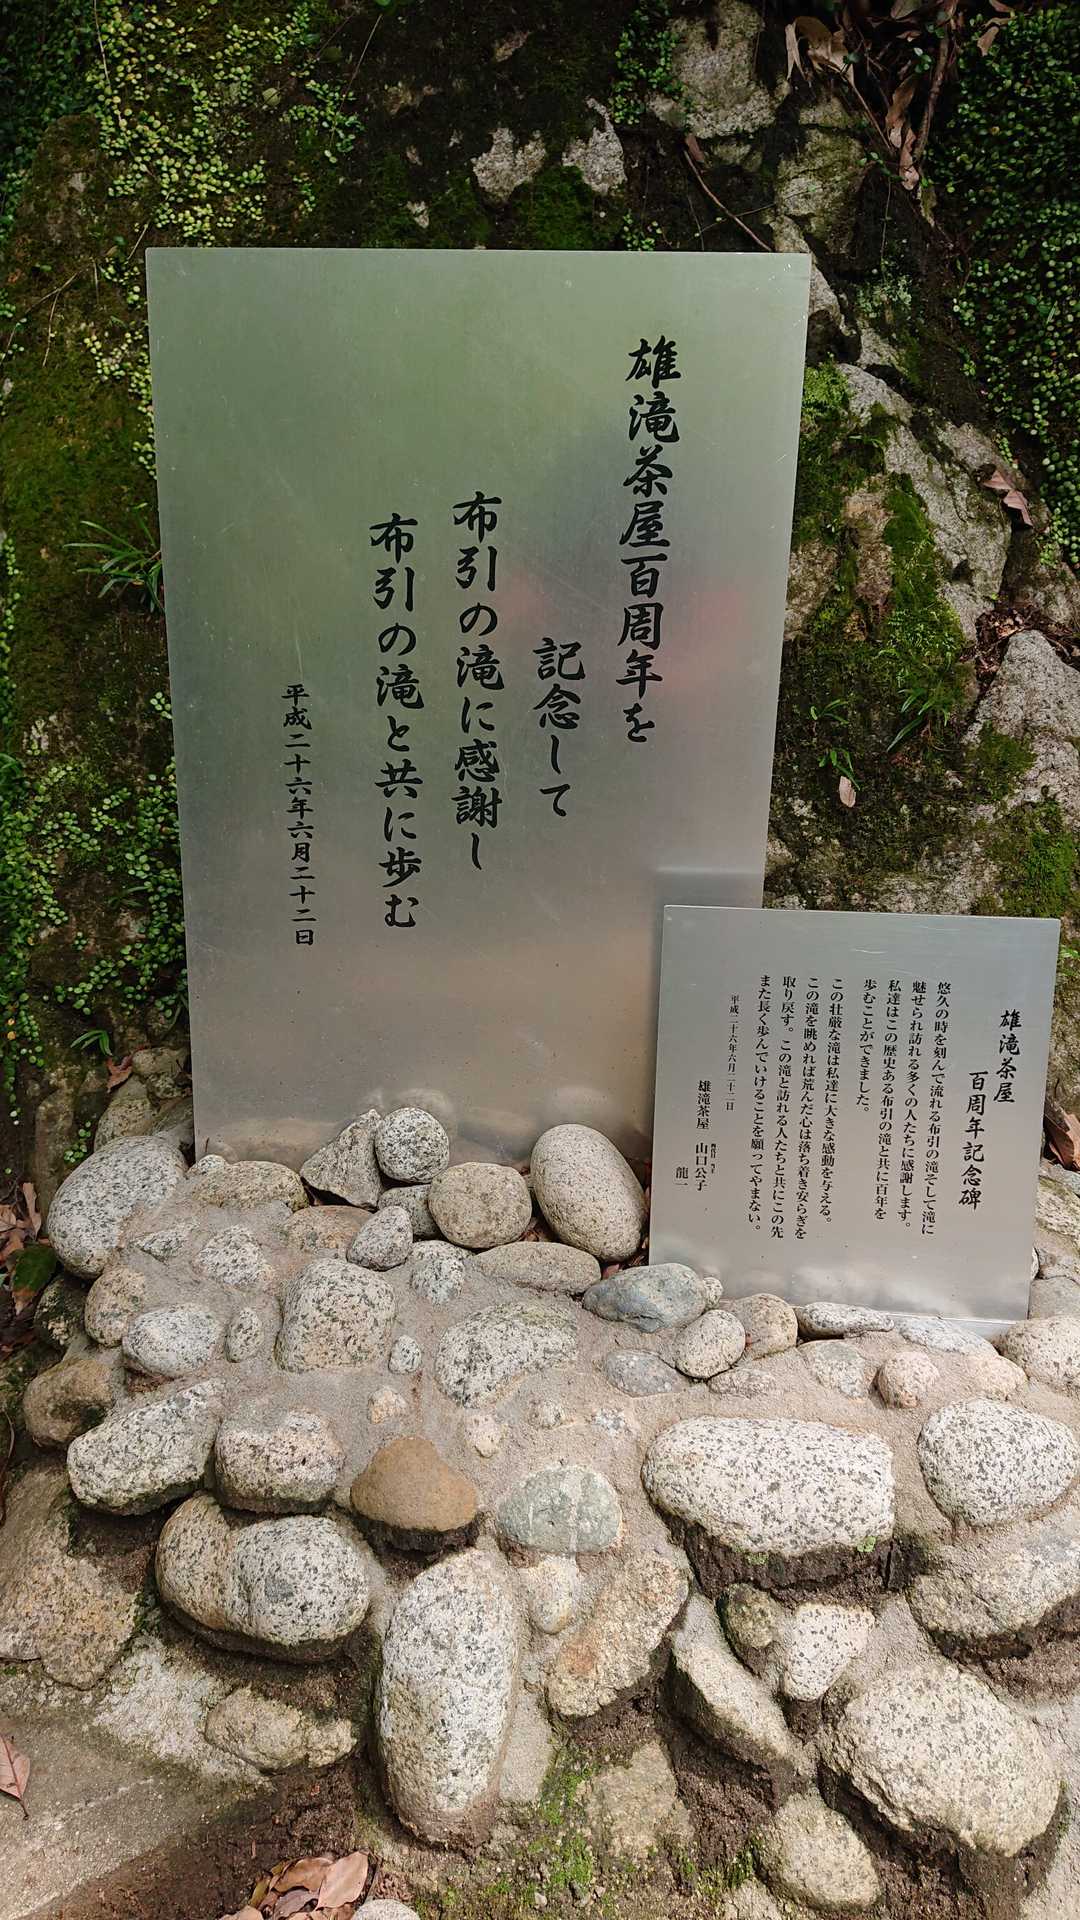 雄滝茶屋百周年を
記念して
布引の滝に感謝し
布引の滝と共に歩む
平成二十六年六月二十二日
雄滝茶屋
百周年記念碑
悠久の時を刻んで流れる布引の滝そして滝に
魅せられ訪れる多くの人たちに感謝します。
私達はこの歴史ある布引の滝と共に百年を
歩むことができました。
この壮厳な滝は私達に大きな感動を与える。
この滝を眺めれば荒んだ心は落ち着き安らぎを
取り戻す。この滝と訪れる人たちと共にこの先
また長く歩んでいけることを願ってやまない。
平成二十六年六月二十二日
雄滝茶屋 山口公子
龍一